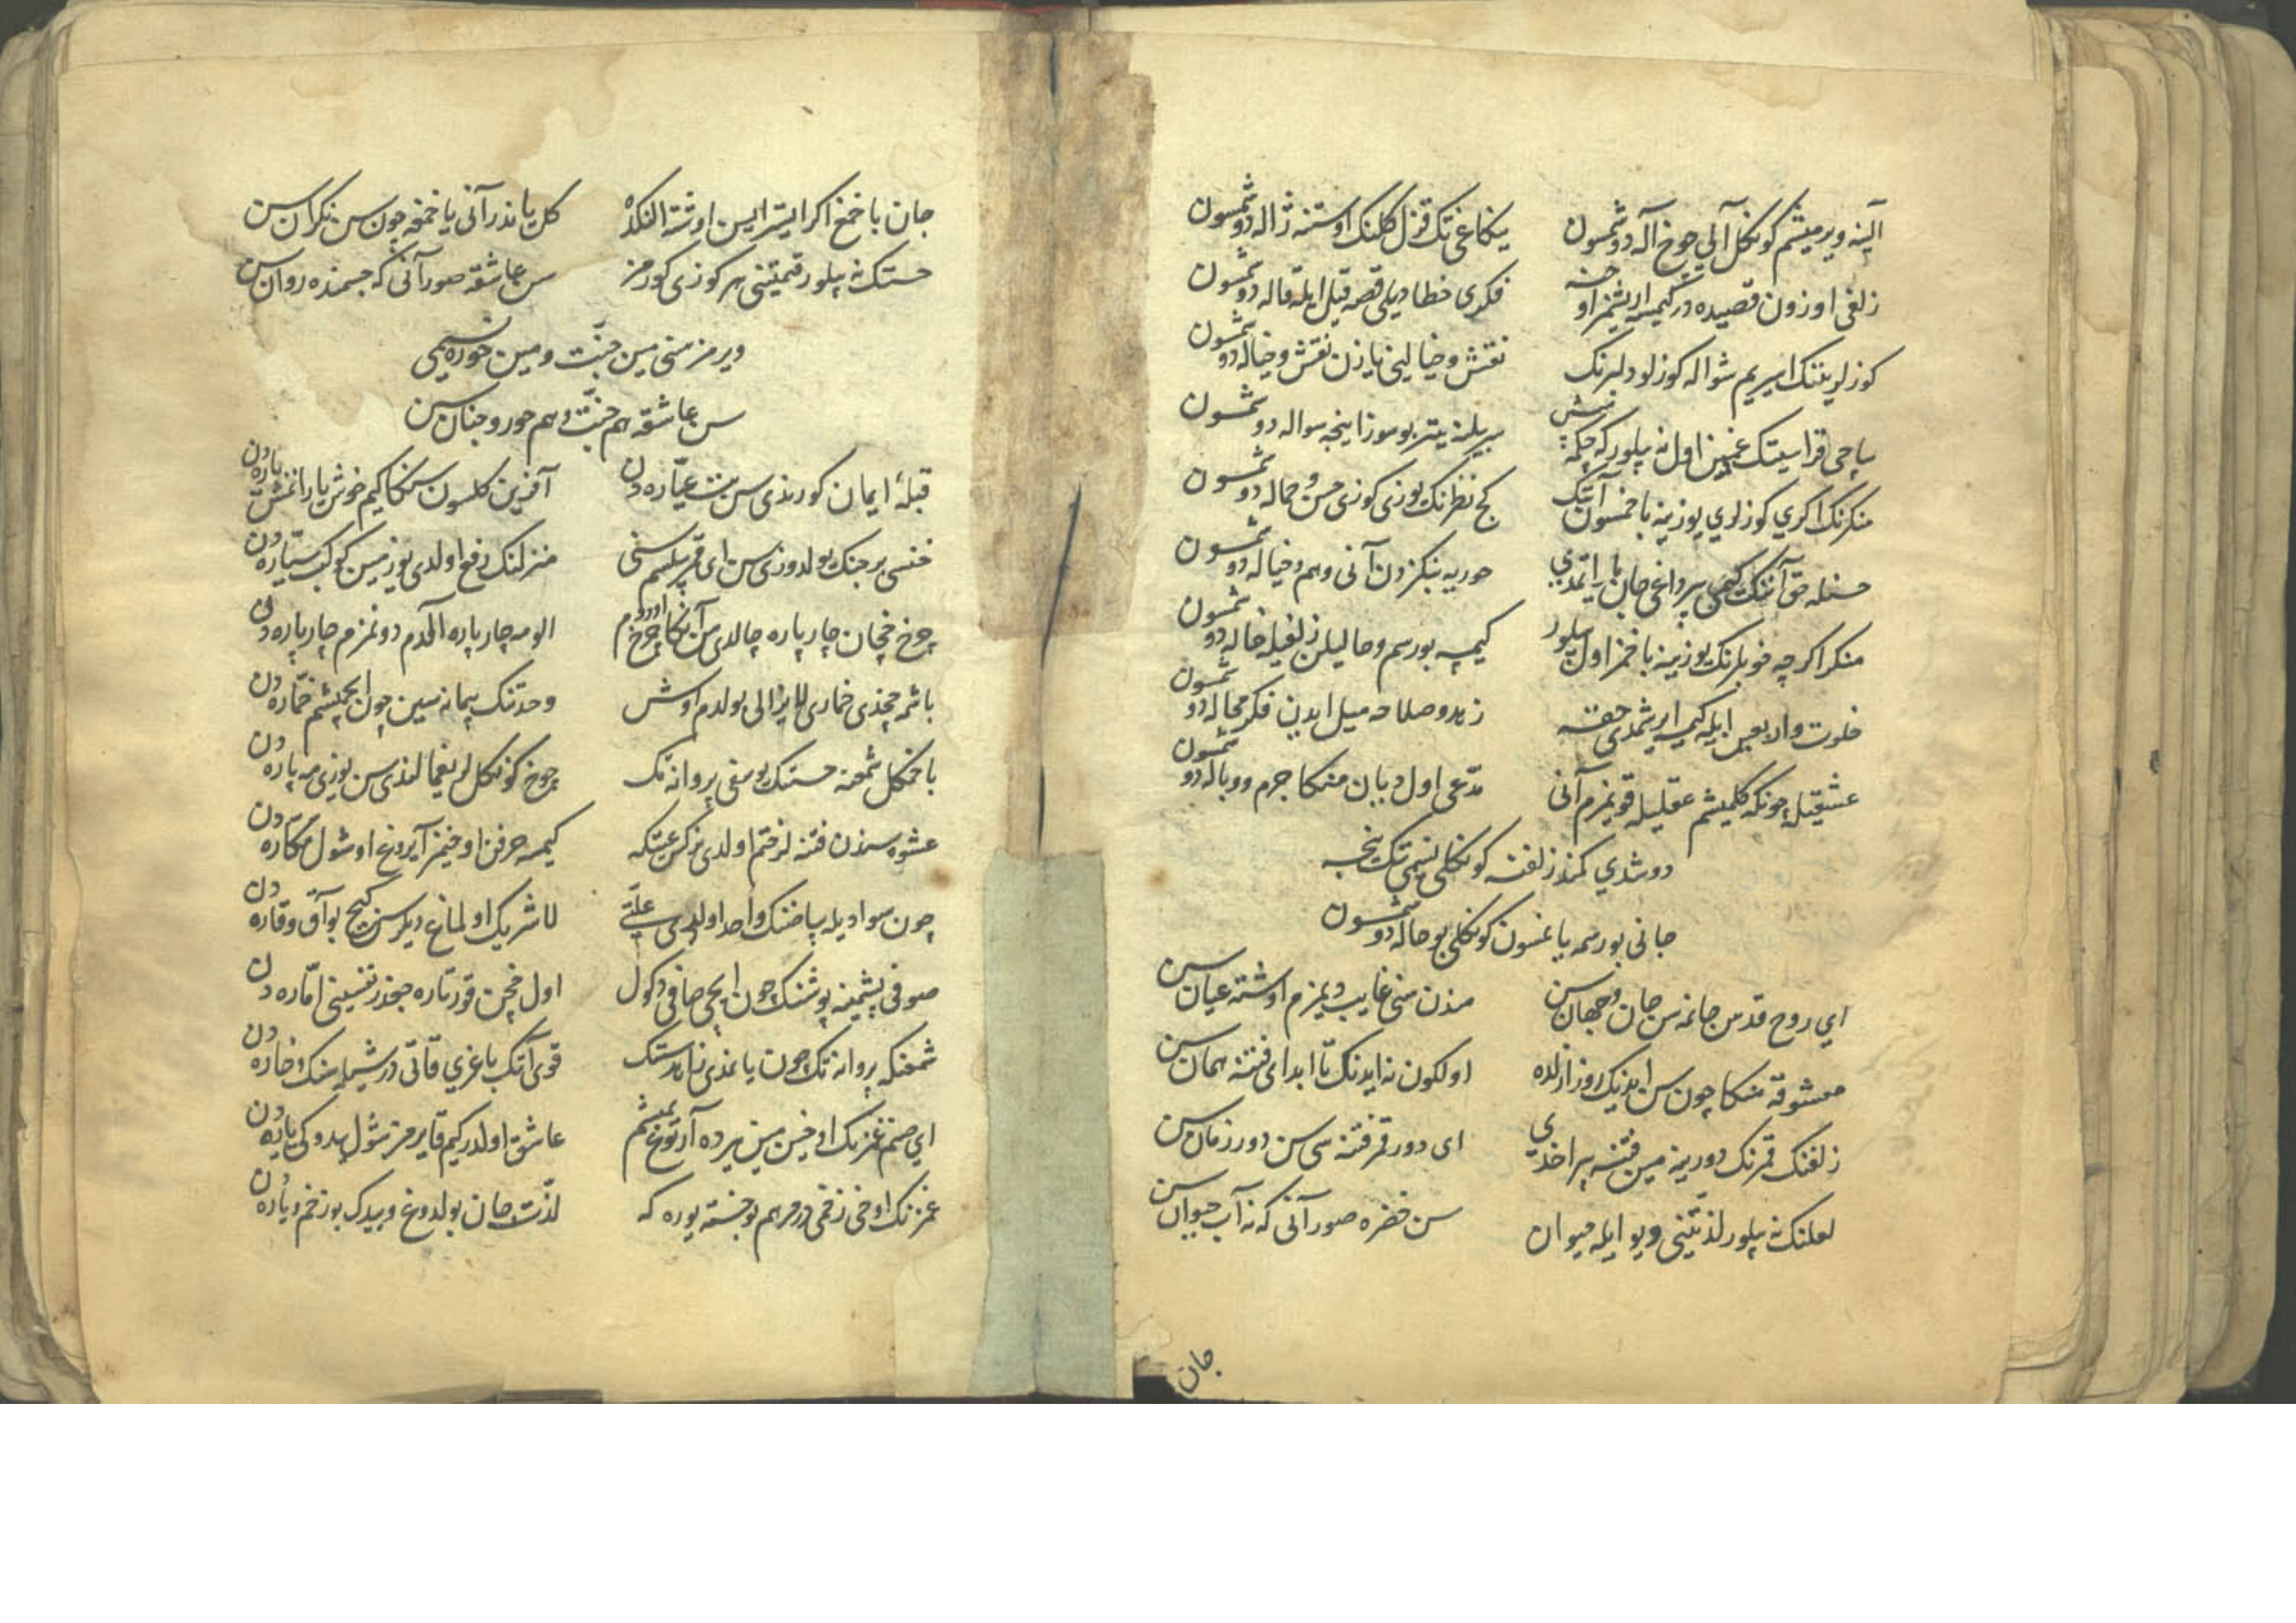 آلینه ویرمیشم کونکل آلی چوخ آله دوشمسون
ینکاغی تک قزل کلنک اوستنه ژاله دوشمسون
زلفی اوزون قصیده در کیمسه ایریشمز اوجنه
فکری خطا دیلی قصه قیل ایله قاله دوشمسون
کوزلرینک اسیریم شواله کوزلو دلبرنک
نقش و خیالینی یازن نقش و خیاله دوشمسون
ساچی قراسینک غمین اول نه بیلور که چکمه
بیلمز یتر بو سوز اینجه سواله دوشمسون
منکرنک اکری کوزلری یوزینه باخمسون آنک
کج نظرنک یوزی کوزی حسن و جماله دوشمسون
حسنله حق آننک کیمی بیر داغی جان یاراتمدی
حوریه بنکزدن آنی وهم و خیاله دوشمسون
منکر اکرچه خوبلرنک یوزینه باخمز اول بیلور
کیمسه بو رسم و حالیلن زلفیله خاله دوشمسون
خلوت و اربعین ایله کیمسه ایریشمدی حقه
زهد و صلاحه میل ایدن فکر محاله دوشمسون
عشقیله چونکه کلمیشم عقلیله قویمزم آنی
مدعی اول دیان منکا جرم و وباله دوشمسون
دوشدی کمند زلفنه کونکلی نسیمی تک نیجه
جانی بو رسمه یاغسون کونکلی بو حاله دوشمسون
ای روح قدس جانمه سن جان و جهان سن
مندن سنی غایب دیمزم اوشته عیان سن
معشوقه منکا چون سن ایدنک روز ازلده
اولکون نه ایدنک تا ابد ای فتنه همان سن
زلفنک قمرنک دورینه مین فتنه بیراخدی
ای دور قمر فتنه سی سن دور زمان سن
لعلنک نه بیلور لذتینی دیو ایله حیوان
سن خضره صور آنی که نه آب حیوان سن
جان
جان باخمغ اکر ایستر ایسن اوشته النکده
کل یاندر آنی یاخمغه چون سن نکران سن
حسنک نه بیلور قیمتینی هر کوزی کورمز
سن عاشقه صور آنی که جسمنده روان سن
ویرمز سنی مین جنت و مین حوره نسیمی
سن عاشقه هم جنت و هم حور و جنان سن
قبلهٔ ایمان کورندی سن بت عیاره دن
آفرین کلسون سنکا کیم خوش یارانمش یاره دن
خنسی برجنک یولدوزی سن ای قمر بیلسم سنی
منزلنک رفع اولدی یوز مین کوکب سیاره دن
چرخ خچان چارپاره چالدی من آنکا چرخ اوردورم
الومه چارپاره آلدم دونمزم چارپاره دن
باشمه چخدی خماری لایزالی بولدم اوش
وحدتنک پیمانه سین چون ایچمیشم خماره دن
باخمکل شمعنه حسنک یوسفی پروانه تک
چوخ کونکل لر یغمالندی سن یوزی مه پاره دن
عشوه سندن فتنه لر ختم اولدی نرکس عینکه
کیمسه حرفن اوخیمز آیروغ اوشول مکاره دن
چون سوادیله بیاضنک واحد اولدی علتی
لاشریک اولماغ دیلرسن کیچ بو آق و قاره دن
صوفی پشمینه پوشنک چون ایچی صافی دکول
اول خچن قورتاره جخدر نفسینی اماره دن
شمعنکه پروانه تک چون یاندی نابدستک
قوی آنک باغری قاتی در شیله سنک و خاره دن
ای صنم غمزنک اوخین مین پرده آرتوغ یمیشم
عاشق اولدر کیم قایرمز شول یدوکی یاره دن
غمزنک اوخی زخمی در مرهم بو خسته یوره که
لذت جان بولدوغ و بیدک بو زخم و یاره دن